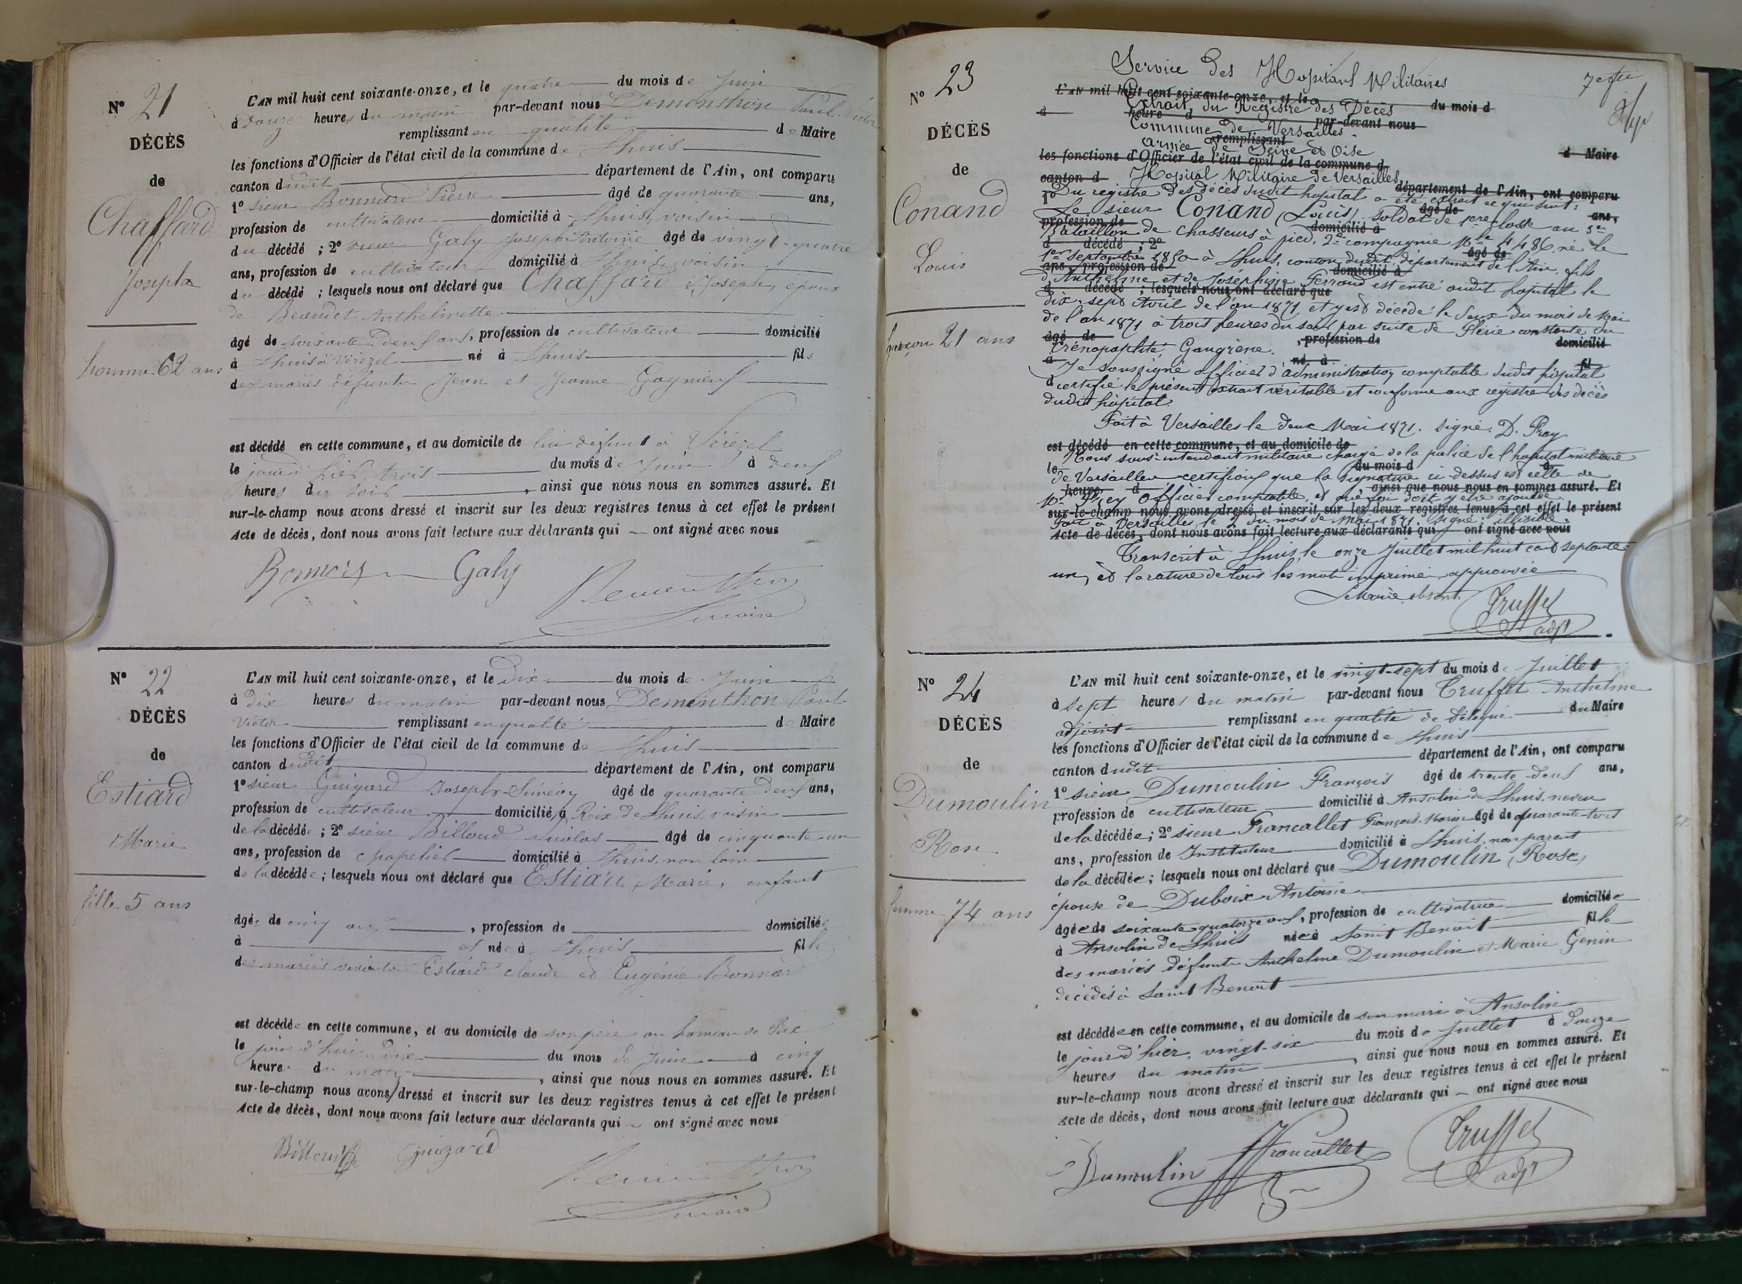 N° 21
DÉCÈS
de
Chaffard
Joseph
homme 62 ans
L'AN mil huit cent soixante-onze, et le quatre du mois de Juin
à douze heures du matin par-devant nous Demonthon Paul Victor
remplissant en qualité de Maire
les fonctions d'Officier de l'état civil de la commune de Lhuis
canton dudit département de l'Ain, ont comparu
1° sieur Bonnard Pierre âgé de quarante ans,
profession de cultivateur domicilié à Lhuis, voisin
du décédé ; 2° sieur Galy Joseph Antoine âgé de vingt-quatre
ans, profession de cultivateur domicilié à Lhuis, voisin
du décédé ; lesquels nous ont déclaré que Chaffard Joseph, époux
de Beaudet Anthelmette
âgé de soixante deux ans, profession de cultivateur domicilié
à né à Lhuis fils
des mariés défunts Jean et Jeanne
est décédé en cette commune, et au domicile de lui défunt à
le jour d'hier trois du mois de Juin à neuf
heures du soir, ainsi que nous nous en sommes assuré. Et
sur-le-champ nous avons dressé et inscrit sur les deux registres tenus à cet effet le présent
Acte de décès, dont nous avons fait lecture aux déclarants qui ont signé avec nous
Galy
maire
N° 22
DÉCÈS
de
Estiard
Marie
fille 5 ans
L'AN mil huit cent soixante-onze, et le dix du mois de Juin
à dix heures du matin par-devant nous Demonthon Paul
Victor remplissant en qualité de Maire
les fonctions d'Officier de l'état civil de la commune de Lhuis
canton dudit département de l'Ain, ont comparu
1° sieur Guigard Joseph Siméon âgé de quarante deux ans,
profession de cultivateur domicilié à Rix de Lhuis, voisin
de la décédée ; 2° sieur Billoud Nicolas âgé de cinquante un
ans, profession de chapelier domicilié à Lhuis, non loin
de la décédée ; lesquels nous ont déclaré que Estiard Marie, enfant
âgée de cinq ans, profession de domiciliée
à et née à Lhuis fille
des mariés vivants Estiard Claude et Eugénie Bonnard
est décédée en cette commune, et au domicile de son père au hameau de Rix
le jour d'hui dix du mois de Juin à cinq
heures du matin, ainsi que nous nous en sommes assuré. Et
sur-le-champ nous avons dressé et inscrit sur les deux registres tenus à cet effet le présent
Acte de décès, dont nous avons fait lecture aux déclarants qui ont signé avec nous
Billoud Guigard
maire
N° 23
DÉCÈS
de
Conand
Louis
garçon 21 ans
Service des Hôpitaux Militaires
Extrait du Registre des Décès
Commune de Versailles
Armée de Seine et Oise
Hôpital Militaire de Versailles
Du registre des décès dudit hôpital a été extrait ce qui suit :
Le sieur Conand Louis, soldat de 1ere classe au 5e
Bataillon de chasseurs à pied, 2e compagnie Nle 4486 né le
1er Septembre 1850 à Lhuis, canton dudit département de l'Ain, fils
d'Anthelme et de Joséphine Ferrand est entré audit hôpital le
dix-sept Avril de l'an 1871 et y est décédé le deux du mois de Mai
de l'an 1871 à trois heures du soir par suite de Plaie
Gangrène.
Je soussigné officier d'administration comptable dudit hôpital
certifie le présent extrait véritable et conforme aux registres des décès
dudit hôpital.
Fait à Versailles le deux Mai 1871. Signé : D. Frey
Nous sous-intendant militaire chargé de la police de l'hôpital militaire
de Versailles certifions que la signature ci-dessus est celle de
Mr Frey officier comptable, et que foi doit y être ajoutée.
Fait à Versailles le 2 du mois de Mai 1871. Signé : illisible.
Transcrit à Lhuis le onze Juillet mil huit cent septante
un, et la rature de tous les mots imprimés approuvée
Le Maire absent
Truffet
adjt
N° 24
DÉCÈS
de
Dumoulin
Rose
femme 74 ans
L'AN mil huit cent soixante-onze, et le vingt-sept du mois de Juillet
à sept heures du matin par-devant nous Truffet Anthelme
adjoint remplissant en qualité de délégué du Maire
les fonctions d'Officier de l'état civil de la commune de Lhuis
canton dudit département de l'Ain, ont comparu
1° sieur Dumoulin François âgé de trente deux ans,
profession de cultivateur domicilié à Ansolin de Lhuis, neveu
de la décédée ; 2° sieur Francallet François Marie âgé de quarante-trois
ans, profession de Instituteur domicilié à Lhuis, non parent
de la décédée ; lesquels nous ont déclaré que Dumoulin Rose,
épouse de Duboix Antoine
âgée de soixante quatorze ans, profession de cultivatrice domiciliée
à Ansolin de Lhuis née à Saint Benoit fille
des mariés défunts Anthelme Dumoulin et Marie Genin
décédés à Saint Benoit
est décédée en cette commune, et au domicile de son mari à Ansolin
le jour d'hier vingt-six du mois de Juillet à douze
heures du matin, ainsi que nous nous en sommes assuré. Et
sur-le-champ nous avons dressé et inscrit sur les deux registres tenus à cet effet le présent
Acte de décès, dont nous avons fait lecture aux déclarants qui ont signé avec nous
Dumoulin Francallet Truffet
adjt